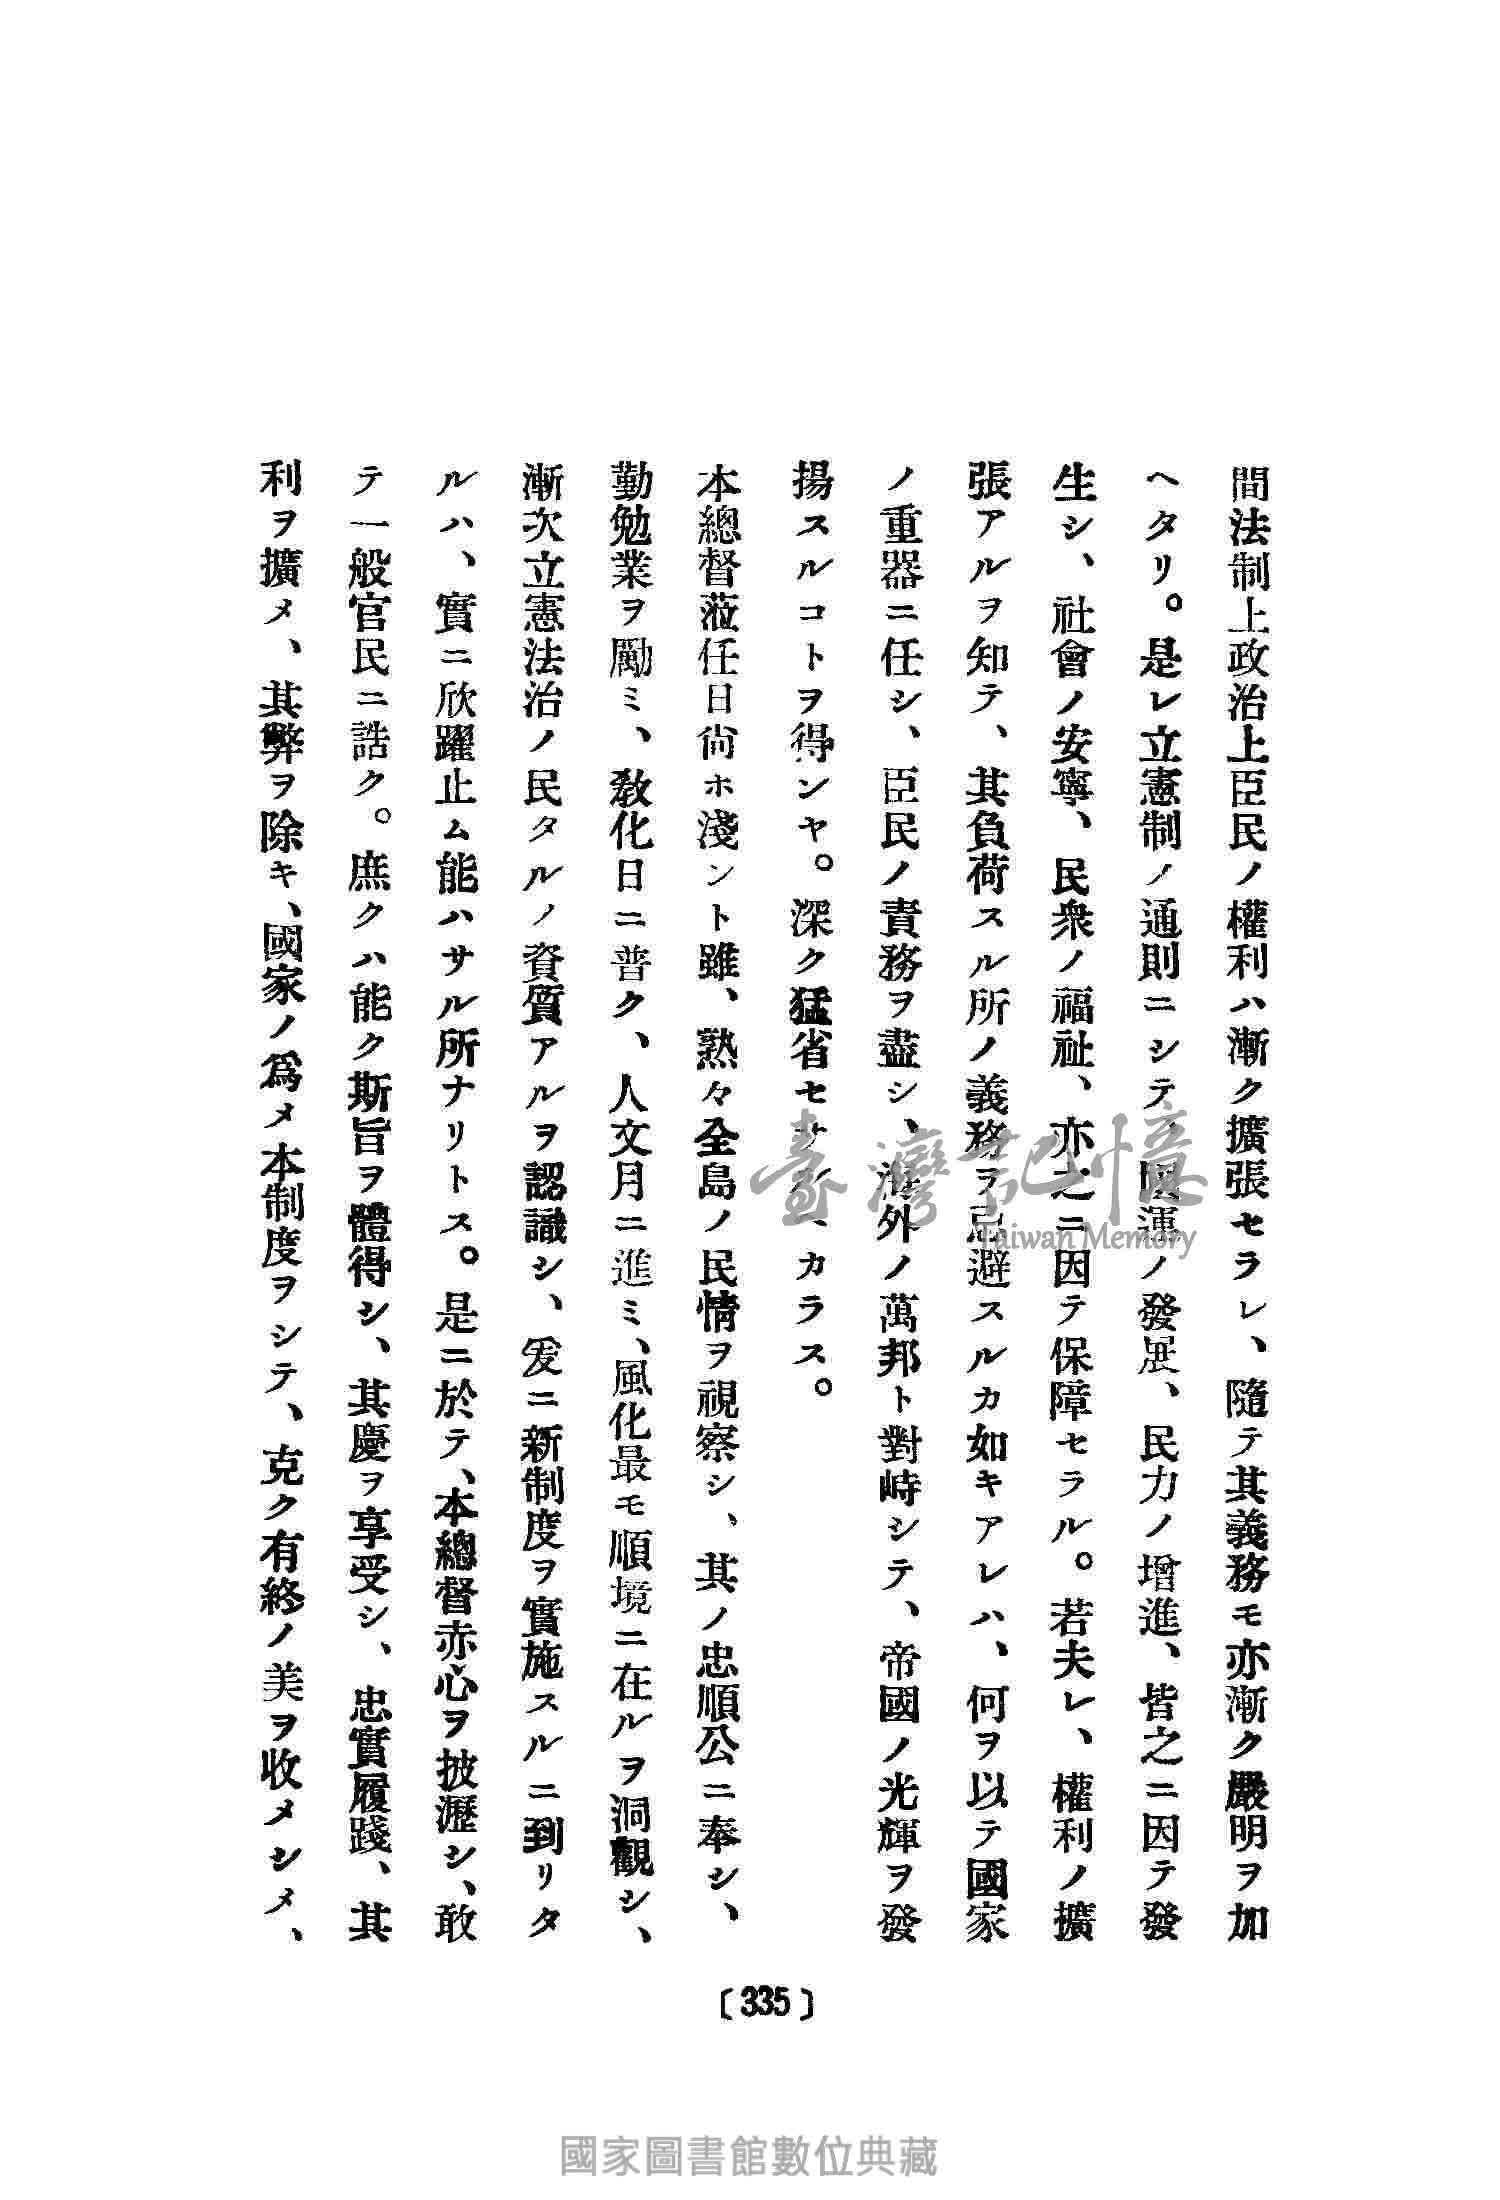 間法制上政治上臣民ノ權利ハ漸ク擴張セラレ、隨テ其義務モ亦漸ク嚴明ヲ加
ヘタリ。是レ立憲制ノ通則ニシテ、國運ノ發展、民力ノ增進、皆之ニ因テ發
生シ、社會ノ安寧、民衆ノ福祉、亦之ニ因テ保障セラル。若夫レ、權利ノ擴
張アルヲ知テ、其負荷スル所ノ義務ヲ忌避スルカ如キアレハ、何ヲ以テ國家
ノ重器ニ任シ、臣民ノ責務ヲ盡シ、海外ノ萬邦ト對峙シテ、帝國ノ光輝ヲ發
揚スルコトヲ得ンヤ。深ク猛省セサルヘカラス。
本總督蒞任日尙ホ淺ント雖、熟々全島ノ民情ヲ視察シ、其ノ忠順公ニ奉シ、
勤勉業ヲ勵ミ、敎化日ニ普ク、人文月ニ進ミ、風化最モ順境ニ在ルヲ洞觀シ、
漸次立憲法治ノ民タルノ資質アルヲ認識シ、爰ニ新制度ヲ實施スルニ到リタ
ルハ、實ニ欣躍止ム能ハサル所ナリトス。是ニ於テ、本總督赤心ヲ披瀝シ、敢
テ一般官民ニ誥ク。庶クハ能ク斯旨ヲ體得シ、其慶ヲ享受シ、忠實履踐、其
利ヲ擴メ、其弊ヲ除キ、國家ノ爲メ本制度ヲシテ、克ク有終ノ美ヲ收メシメ、
〔335〕
臺灣記憶
Taiwan Memory
國家圖書館數位典藏